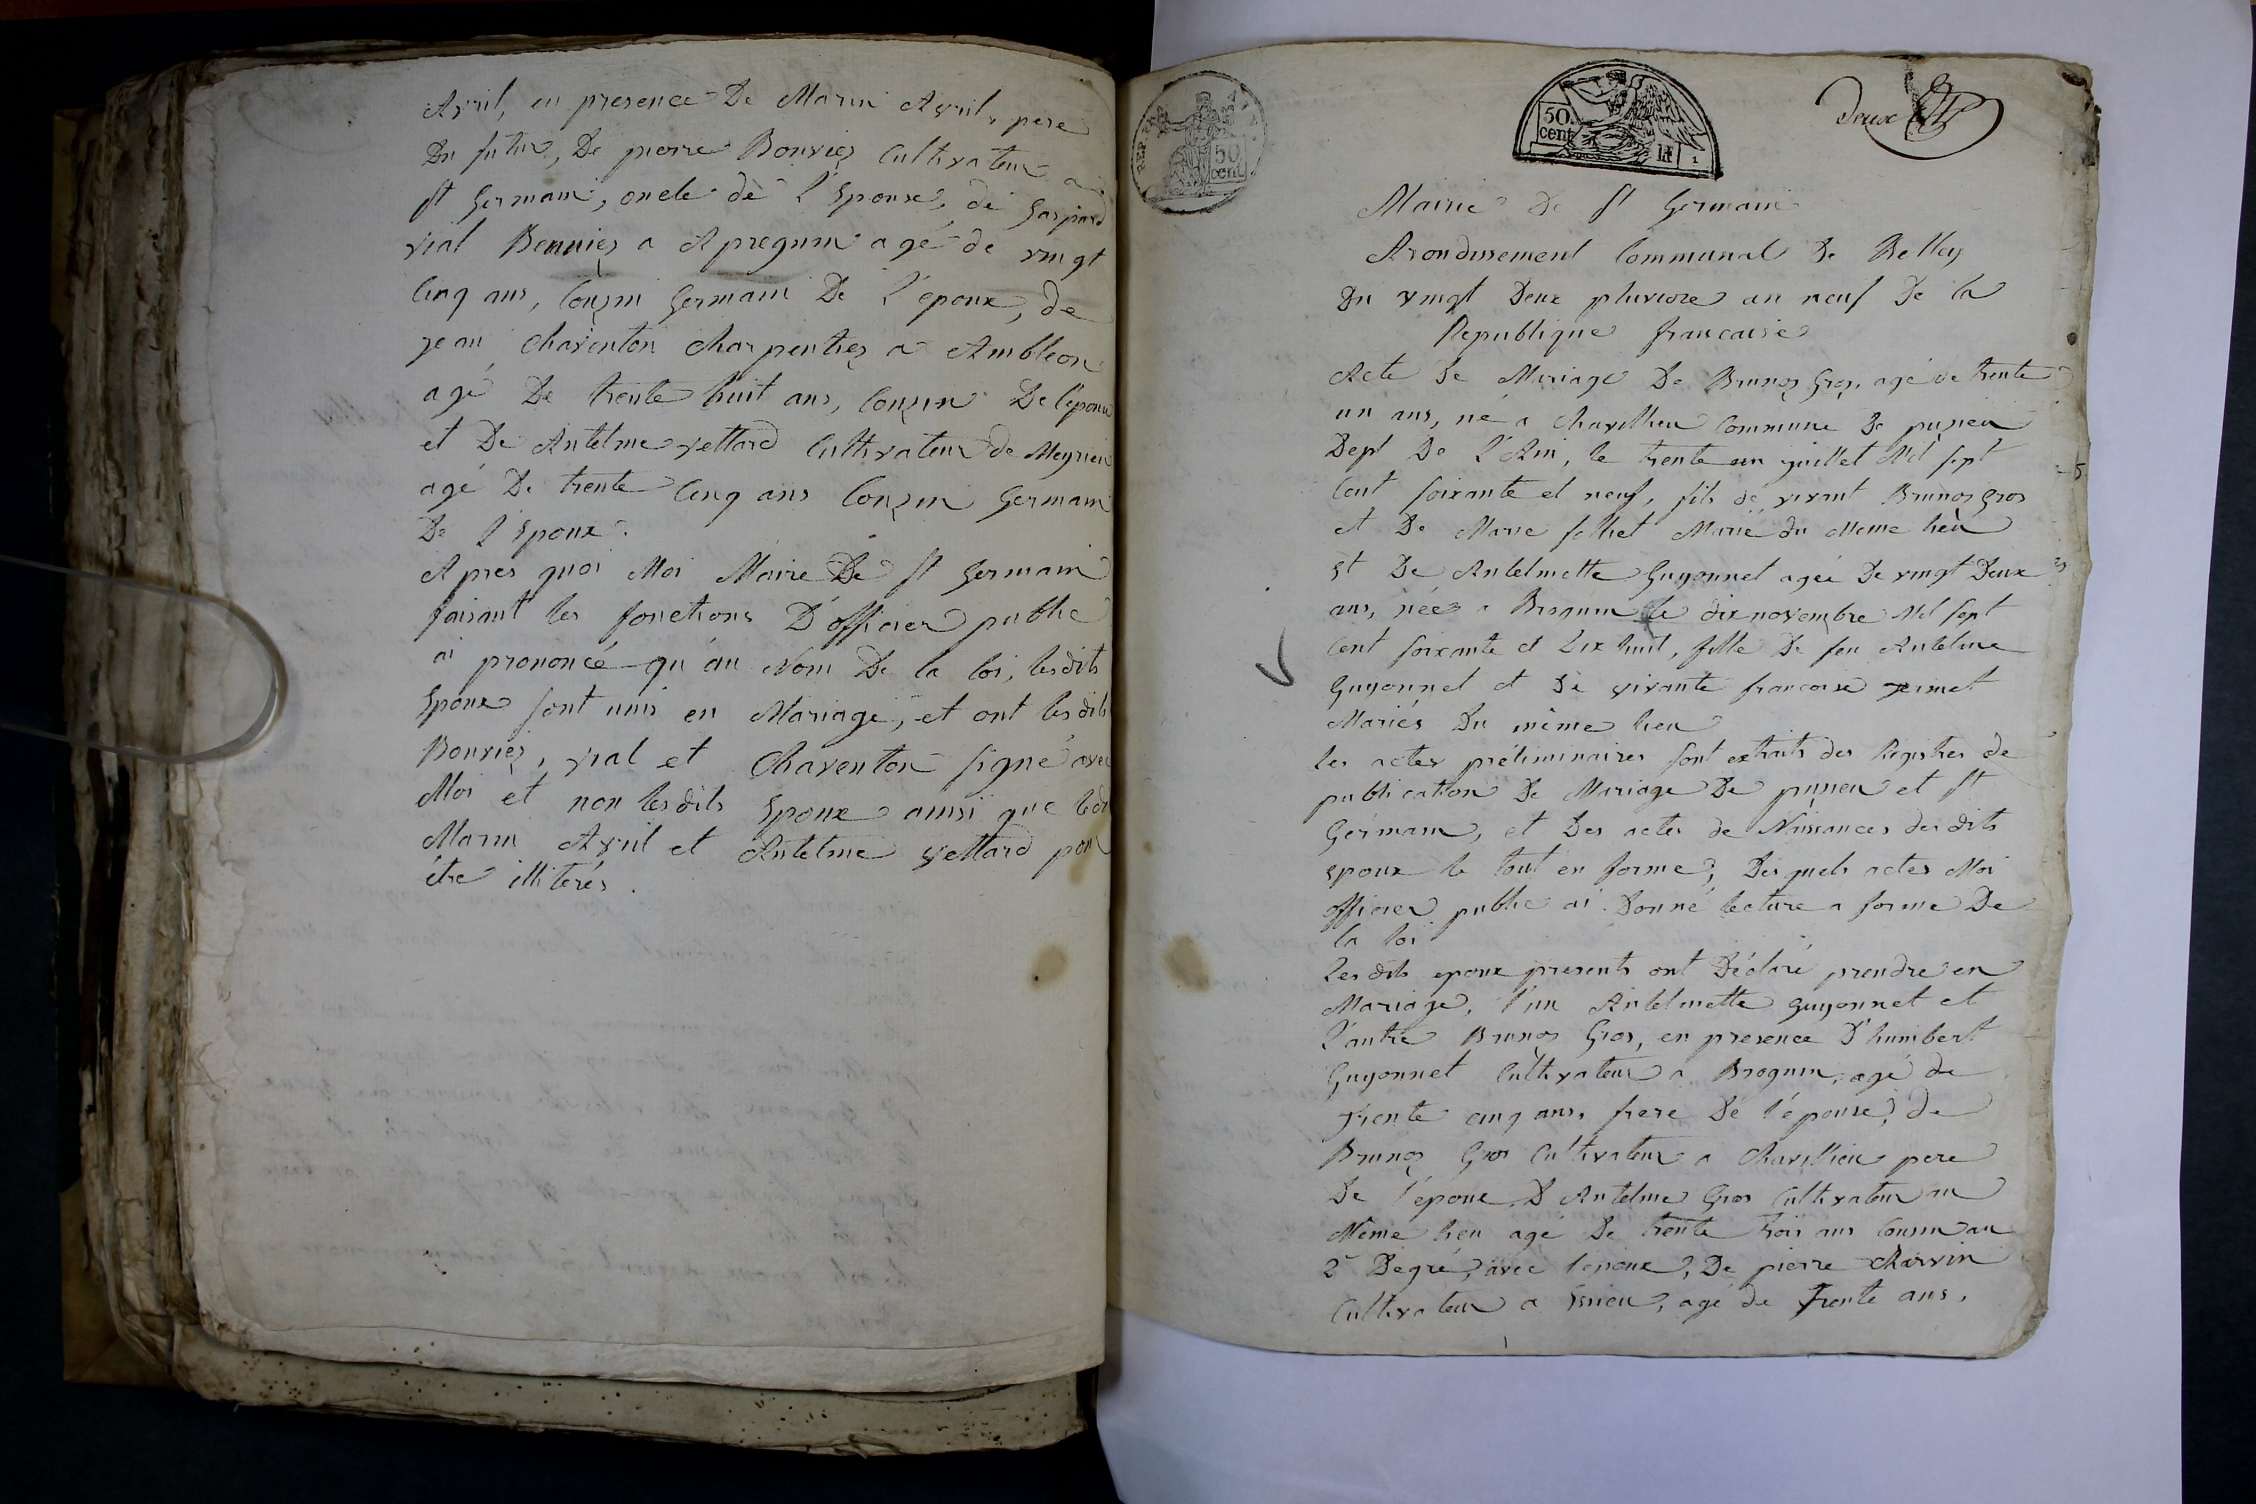 Avril, en presence De Marin Avril, pere
Du futur, De pierre Bouvier Cultivateur a
St Germain, oncle de l'Epouse, de Gaspard
vial Bouvier a Apregnin agé de vingt
Cinq ans, Couzin Germain De l'epoux, de
jean Chaventon Charpentier a Ambleon
agé De trente huit ans, Couzin De l'epoux
et De Antelme vettard Cultivateur de Meyrieu
agé De trente Cinq ans Couzin Germain
De l'Epoux.
Apres quoi Moi Maire De St Germain
faisant les fonctions D'officier public
ai prononcé qu'au Nom De la loi, lesdits
Epoux sont unis en Mariage, et ont lesdits
Bouvier, vial et Chaventon signé avec
Moi et non lesdits Epoux ainsi que ledt
Marin Avril et Antelme vettard pour
être illiterés.
REP. FRA.
50
cent.
50
cent
Deux
Mairie De St Germain
Arondissement Communal De Belley
Du vingt Deux pluviose an neuf De la
Republique francaise
Acte De Mariage De Brunos Gros, agé de trente
un ans, né a Chavillieu Commune De pugieu
Dept De l'Ain, le trente un juillet Mil sept
Cent soixante et neuf, fils de vivant Brunos Gros
et De Marie Mariè du Meme lieu
Et De Antelmette Guyonnet agée De vingt Deux
ans, née a Brognin le dix novembre Mil sept
Cent soixante et Dix huit, fille De feu Antelme
Guyonnet et De vivante francoise
Mariés Du même lieu
les actes préliminaires sont extraits des Registres de
publication De Mariage De pugieu et St
Germain, et Des actes de Naissances des dits
epoux le tout en forme, Des quels actes Moi
officier public ai Donné lecture a forme De
la loi
Les dits epoux presents ont Déclaré prendre en
Mariage, l'un Antelmette guyonnet et
l'autre Brunos Gros, en presence D'humbert
Guyonnet Cultivateur a Brognin, agé de
trente cinq ans, frere De l'épouse, de
Brunos Gros Cultivateur a Chavillieu pere
De l'époux, D'Antelme Gros Cultivateur au
Même lieu agé De trente trois ans Cousin au
2e Degré, avec l'epoux, De pierre Charvin
Cultivateur a agé de trente ans,